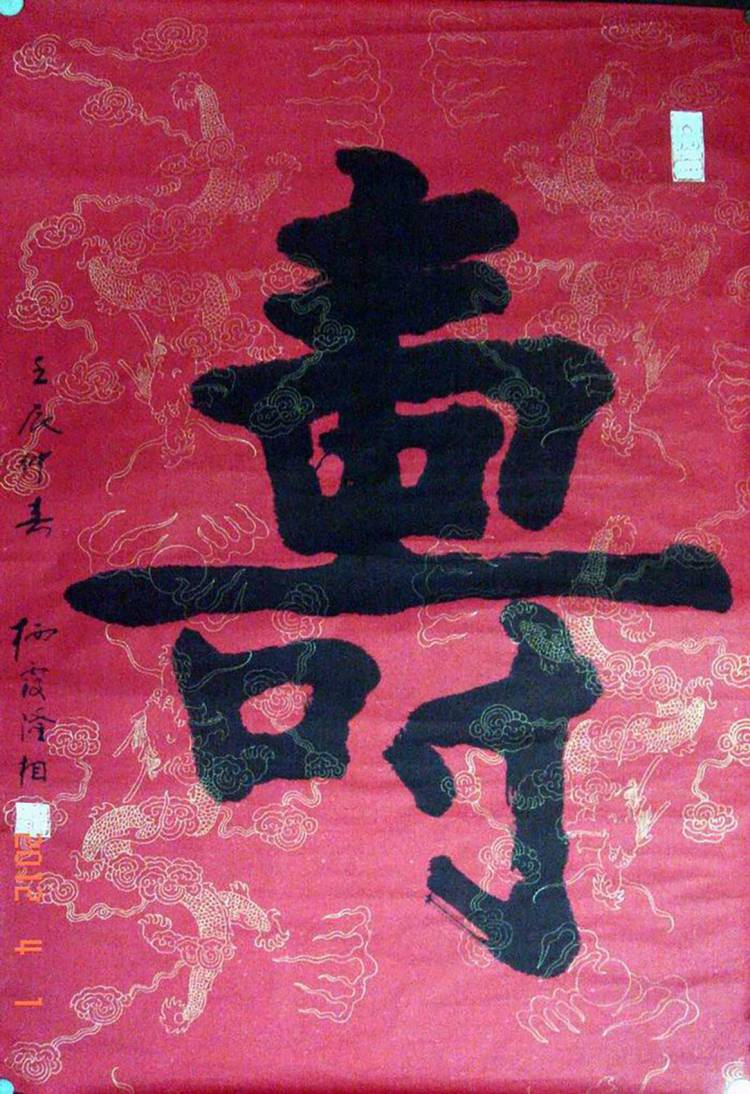 壽
壬辰仲春
栖霞隆相
2012 4 1